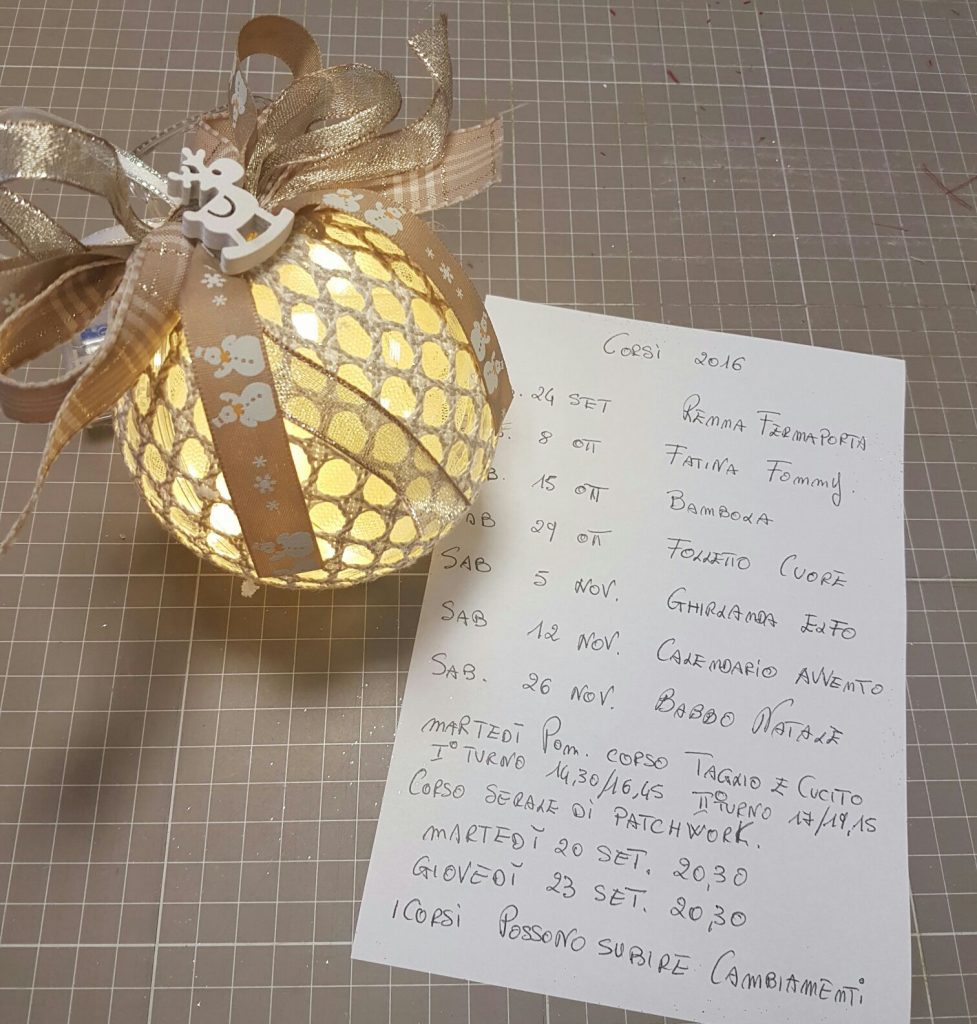 CORSI 2016
24 SET REMMA FERMAPORTA
8 OTT FATINA FOMMY.
15 OTT BAMBOLA
29 OTT FOLLETTO CUORE
SAB 5 NOV. GHIRLANDA ELFO
SAB 12 NOV. CALENDARIO AVVENTO
SAB. 26 NOV. BABBO NATALE
MARTEDÌ POM. CORSO TAGLIO E CUCITO
I° TURNO 14,30/16,45 II° TURNO 17/19,15
CORSO SERALE DI PATCHWORK.
MARTEDÌ 20 SET. 20,30
GIOVEDÌ 23 SET. 20,30
I CORSI POSSONO SUBIRE CAMBIAMENTI